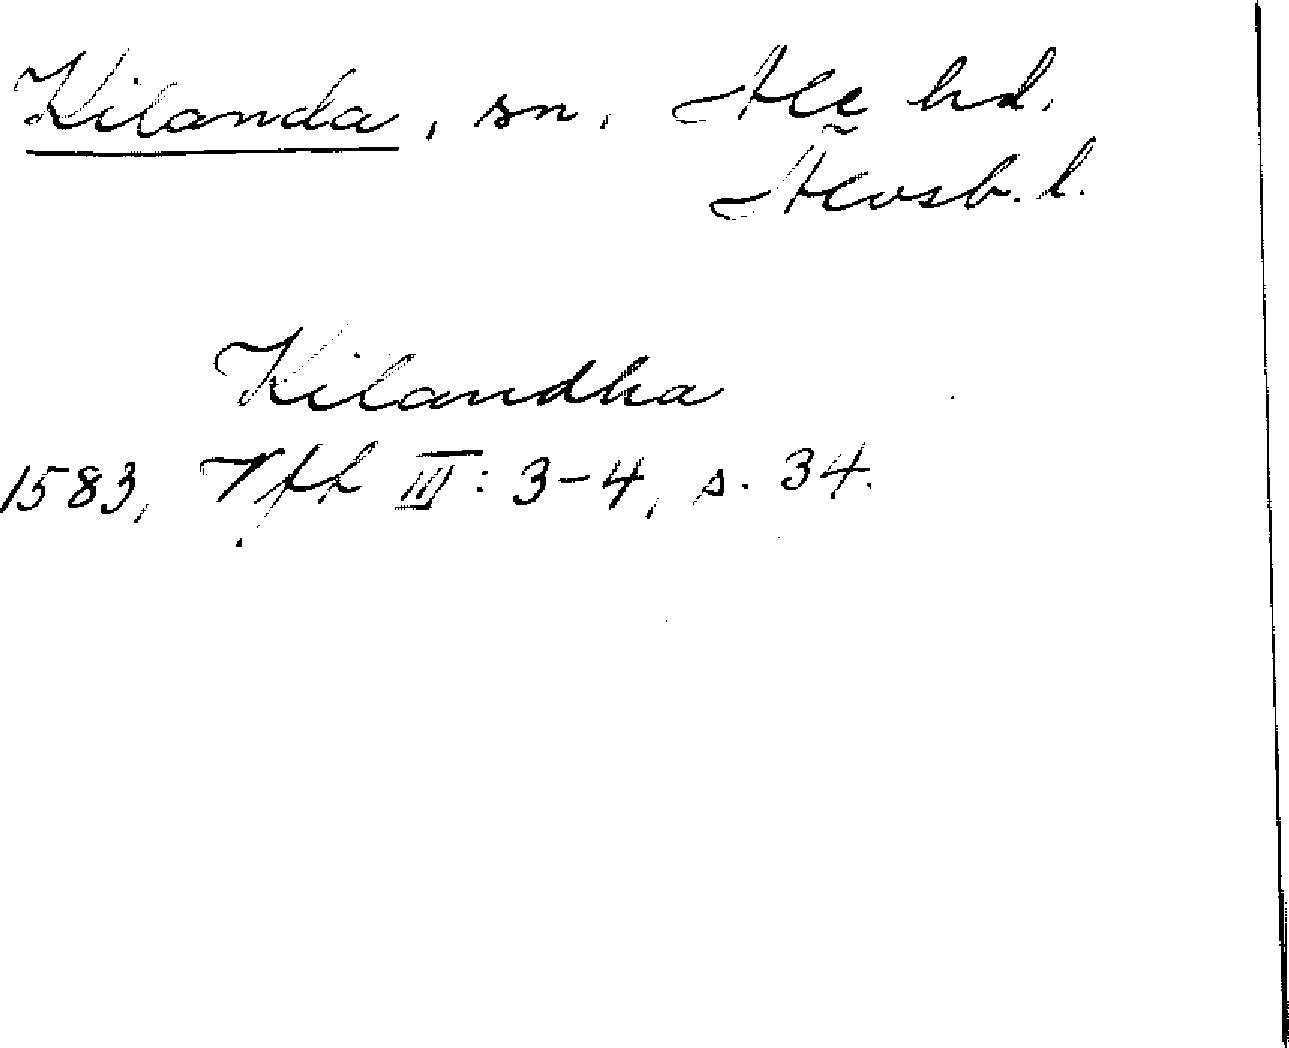 Kilanda, sn. Ale hd.
Älvsb. l.
Kilandha
1583, Vfh III: 3-4, s. 34.